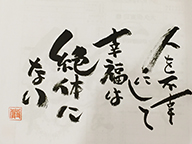 人を不幸
にして
幸福は
絶体に
ない